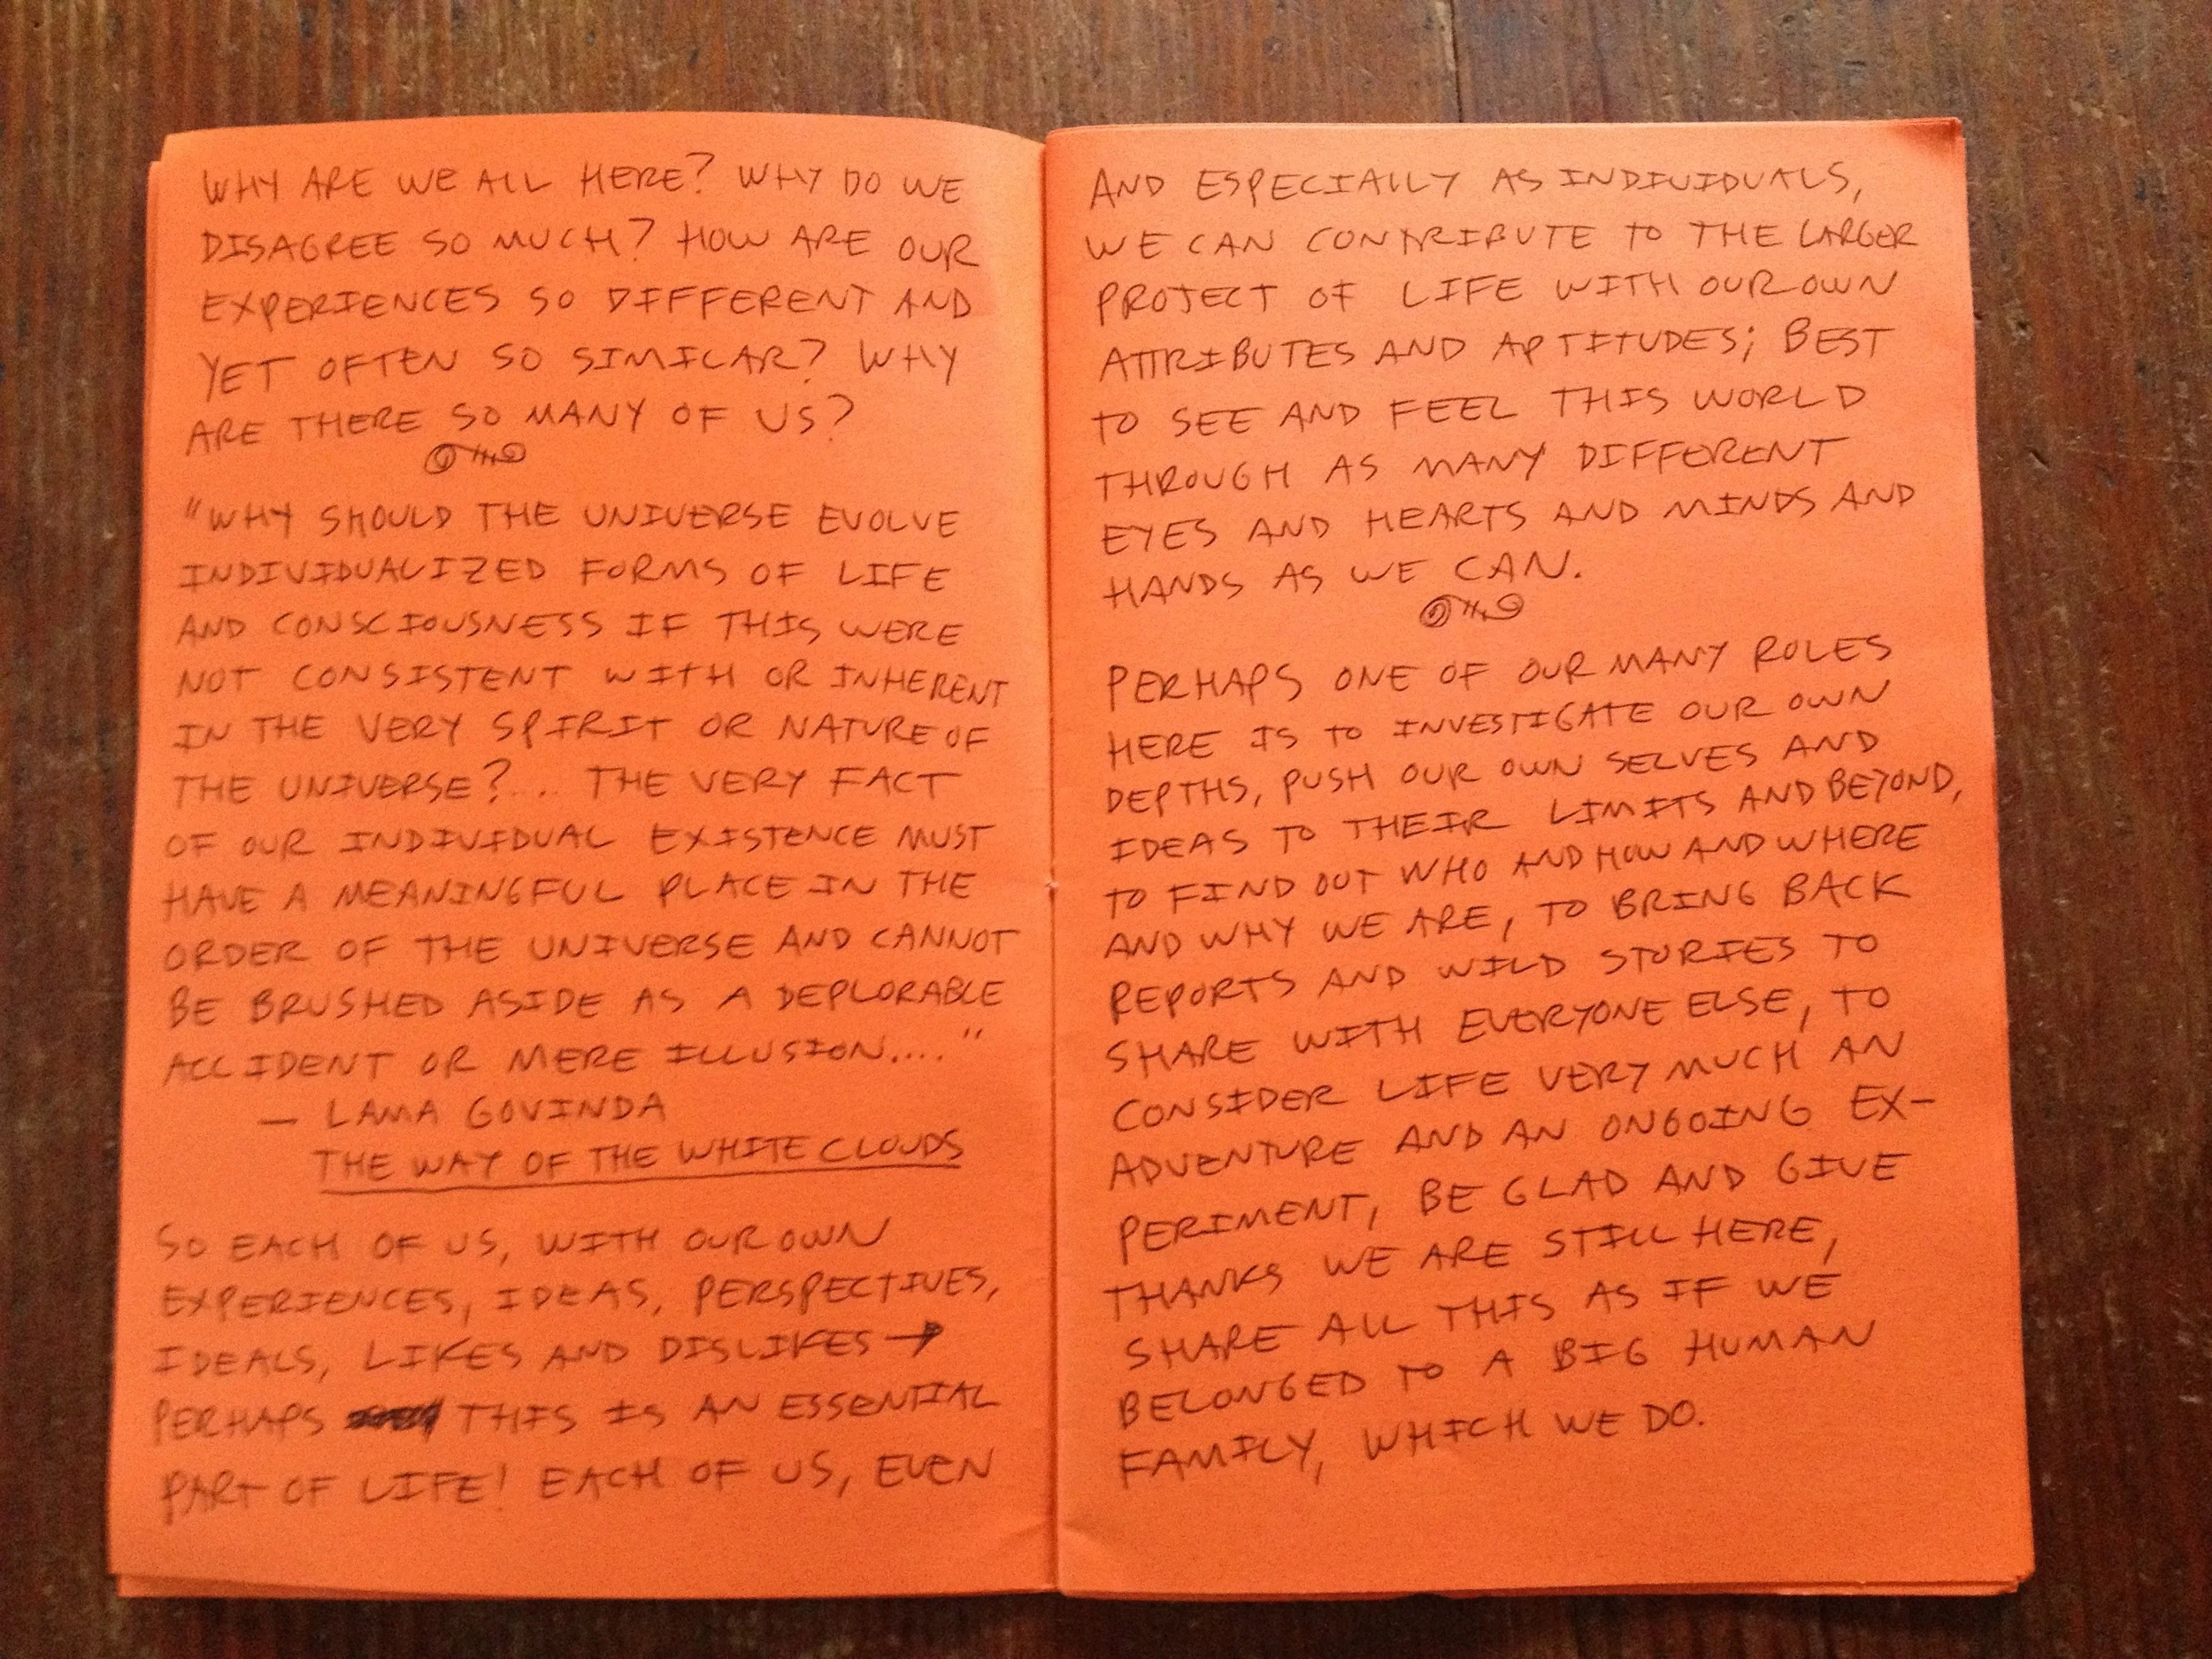 WHY ARE WE ALL HERE? WHY DO WE
DISAGREE SO MUCH? HOW ARE OUR
EXPERIENCES SO DIFFERENT AND
YET OFTEN SO SIMILAR? WHY
ARE THERE SO MANY OF US?
"WHY SHOULD THE UNIVERSE EVOLVE
INDIVIDUALIZED FORMS OF LIFE
AND CONSCIOUSNESS IF THIS WERE
NOT CONSISTENT WITH OR INHERENT
IN THE VERY SPIRIT OR NATURE OF
THE UNIVERSE?... THE VERY FACT
OF OUR INDIVIDUAL EXISTENCE MUST
HAVE A MEANINGFUL PLACE IN THE
ORDER OF THE UNIVERSE AND CANNOT
BE BRUSHED ASIDE AS A DEPLORABLE
ACCIDENT OR MERE ILLUSION...."
— LAMA GOVINDA
THE WAY OF THE WHITE CLOUDS
SO EACH OF US, WITH OUR OWN
EXPERIENCES, IDEAS, PERSPECTIVES,
IDEALS, LIKES AND DISLIKES →
PERHAPS THIS IS AN ESSENTIAL
PART OF LIFE! EACH OF US, EVEN
AND ESPECIALLY AS INDIVIDUALS,
WE CAN CONTRIBUTE TO THE LARGER
PROJECT OF LIFE WITH OUR OWN
ATTRIBUTES AND APTITUDES; BEST
TO SEE AND FEEL THIS WORLD
THROUGH AS MANY DIFFERENT
EYES AND HEARTS AND MINDS AND
HANDS AS WE CAN.
PERHAPS ONE OF OUR MANY ROLES
HERE IS TO INVESTIGATE OUR OWN
DEPTHS, PUSH OUR OWN SELVES AND
IDEAS TO THEIR LIMITS AND BEYOND,
TO FIND OUT WHO AND HOW AND WHERE
AND WHY WE ARE, TO BRING BACK
REPORTS AND WILD STORIES TO
SHARE WITH EVERYONE ELSE, TO
CONSIDER LIFE VERY MUCH AN
ADVENTURE AND AN ONGOING EX-
PERIMENT, BE GLAD AND GIVE
THANKS WE ARE STILL HERE,
SHARE ALL THIS AS IF WE
BELONGED TO A BIG HUMAN
FAMILY, WHICH WE DO.